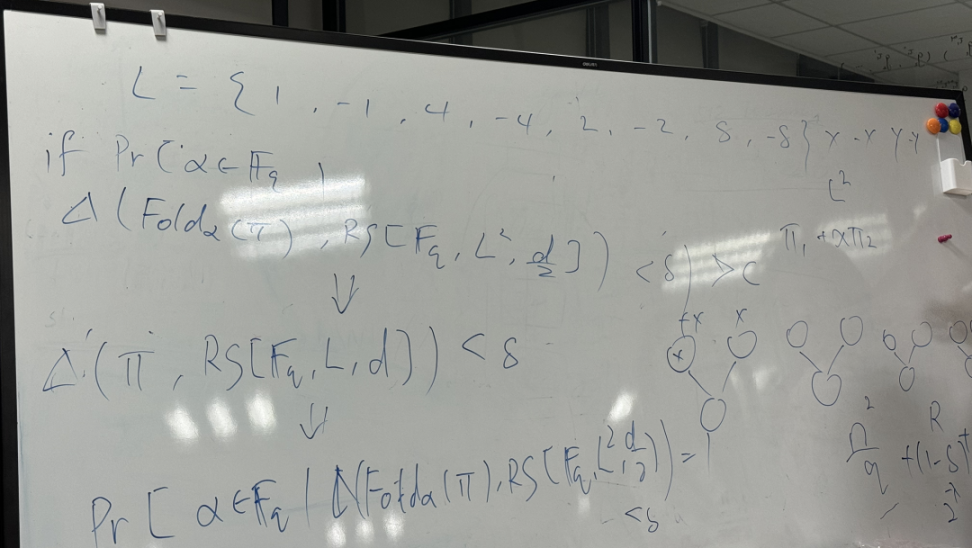 L = { 1 , -1 , 4 , -4 , 2 , -2 , 8 , -8 } x -x y -y
L²
if Pr [ α ∈ F_q |
Δ ( Fold_α (π) , RS [ F_q , L² , d/2 ] ) < δ ) > c
π₁ + απ₂
⇓
Δ' ( π , RS [ F_q , L , d ] ) < δ
+x x
x
⇓
Pr [ α ∈ F_q | Δ ( Fold_α (π) , RS [ F_q , L² , d/2 ) ) = 1
< δ
n²/q + (1-δ)^R +
2^-λ